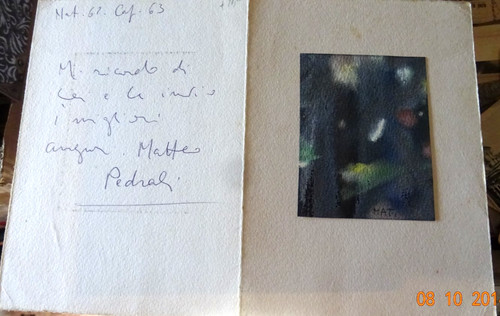 Nat. 62. Cap. 63
Mi ricordo di
Lei e Le invio
i migliori
auguri. Matteo
Pedrali
MAT
08 10 201